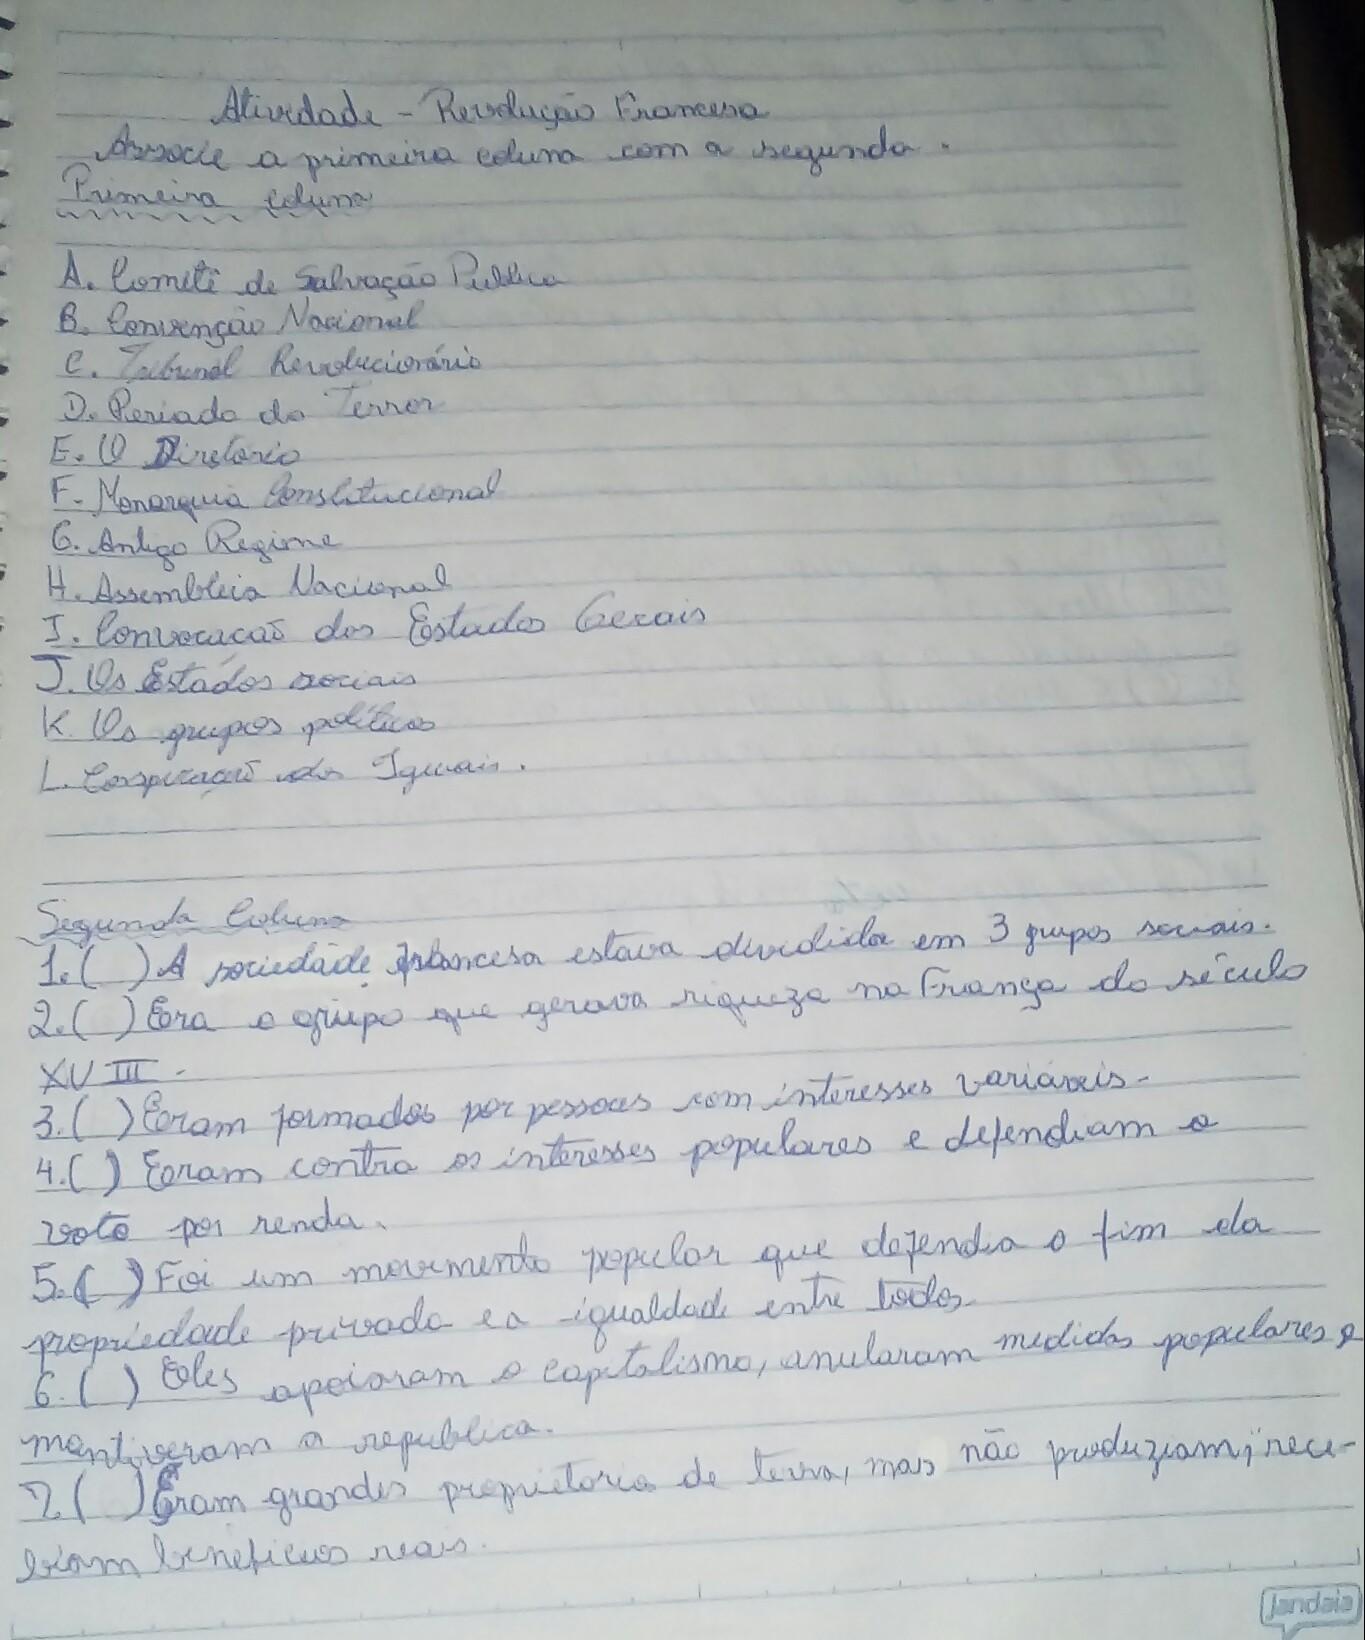 Atividade - Revolução Francesa
Associe a primeira coluna com a segunda.
Primeira coluna
A. Comitê de Salvação Publica
B. Convenção Nacional
C. Tribunal Revolucionário
D. Periado do Terror
E. O Diretorio
F. Monarquia Constitucional
G. Antigo Regime
H. Assembleia Nacional
I. Convocação dos Estados Gerais
J. Os Estados sociais
K. Os grupos politicos
L. Conspiração dos Iguais.
Segunda Coluna
1. ( ) A sociedade francesa estava dividida em 3 grupos sociais.
2. ( ) Era o grupo que gerava riqueza na França do século
XVIII.
3. ( ) Eram formados por pessoas com interesses variáveis.
4. ( ) Eram contra os interesses populares e defendiam o
voto por renda.
5. ( ) Foi um movimento popular que defendia o fim da
propriedade privada e a igualdade entre todos.
6. ( ) Eles apoiaram o capitalismo, anularam medidas populares e
mantiveram a republica.
7. ( ) Eram grandes proprietarios de terra, mas não produziam, rece-
biam beneficios reais.
jandaia